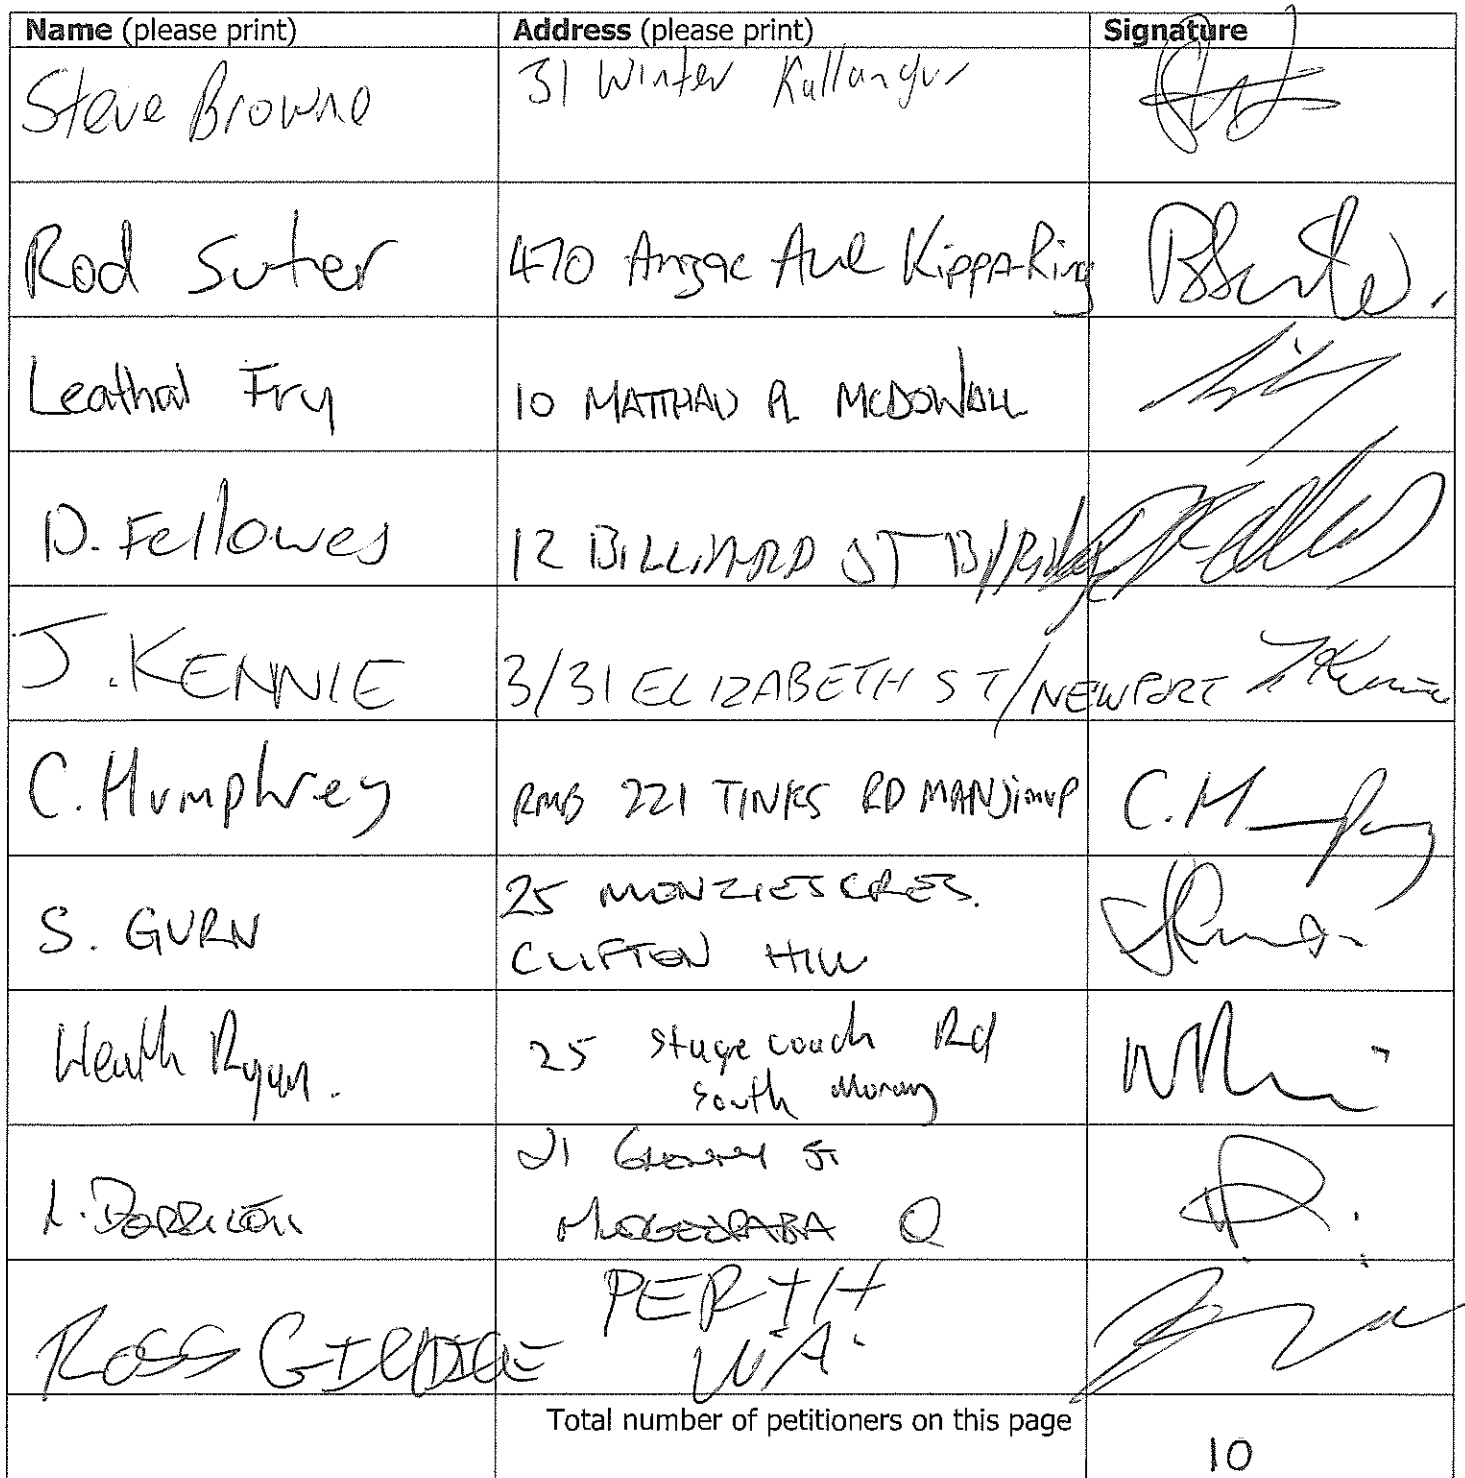 Name (please print) Address (please print) Signature
Steve Browne 31 Winter Kallangur
Rod Suter 470 Anzac Ave Kippa-Ring
Leathal Fry 10 MATTHAU PL McDOWALL
D. Fellowes 12 BILLIARD ST
J. KENNIE 3/31 ELIZABETH ST/NEWPORT
C. Humphrey RMB 221 TINKS RD MANJIMUP C. H
S. GURN 25 MENZIES CRES.
CLIFTON HILL
Heath Ryan. 25 Stagecoach Rd
South Morang
21 ST
MUDGEERABA Q
ROSS PERTH
W.A.
Total number of petitioners on this page
10